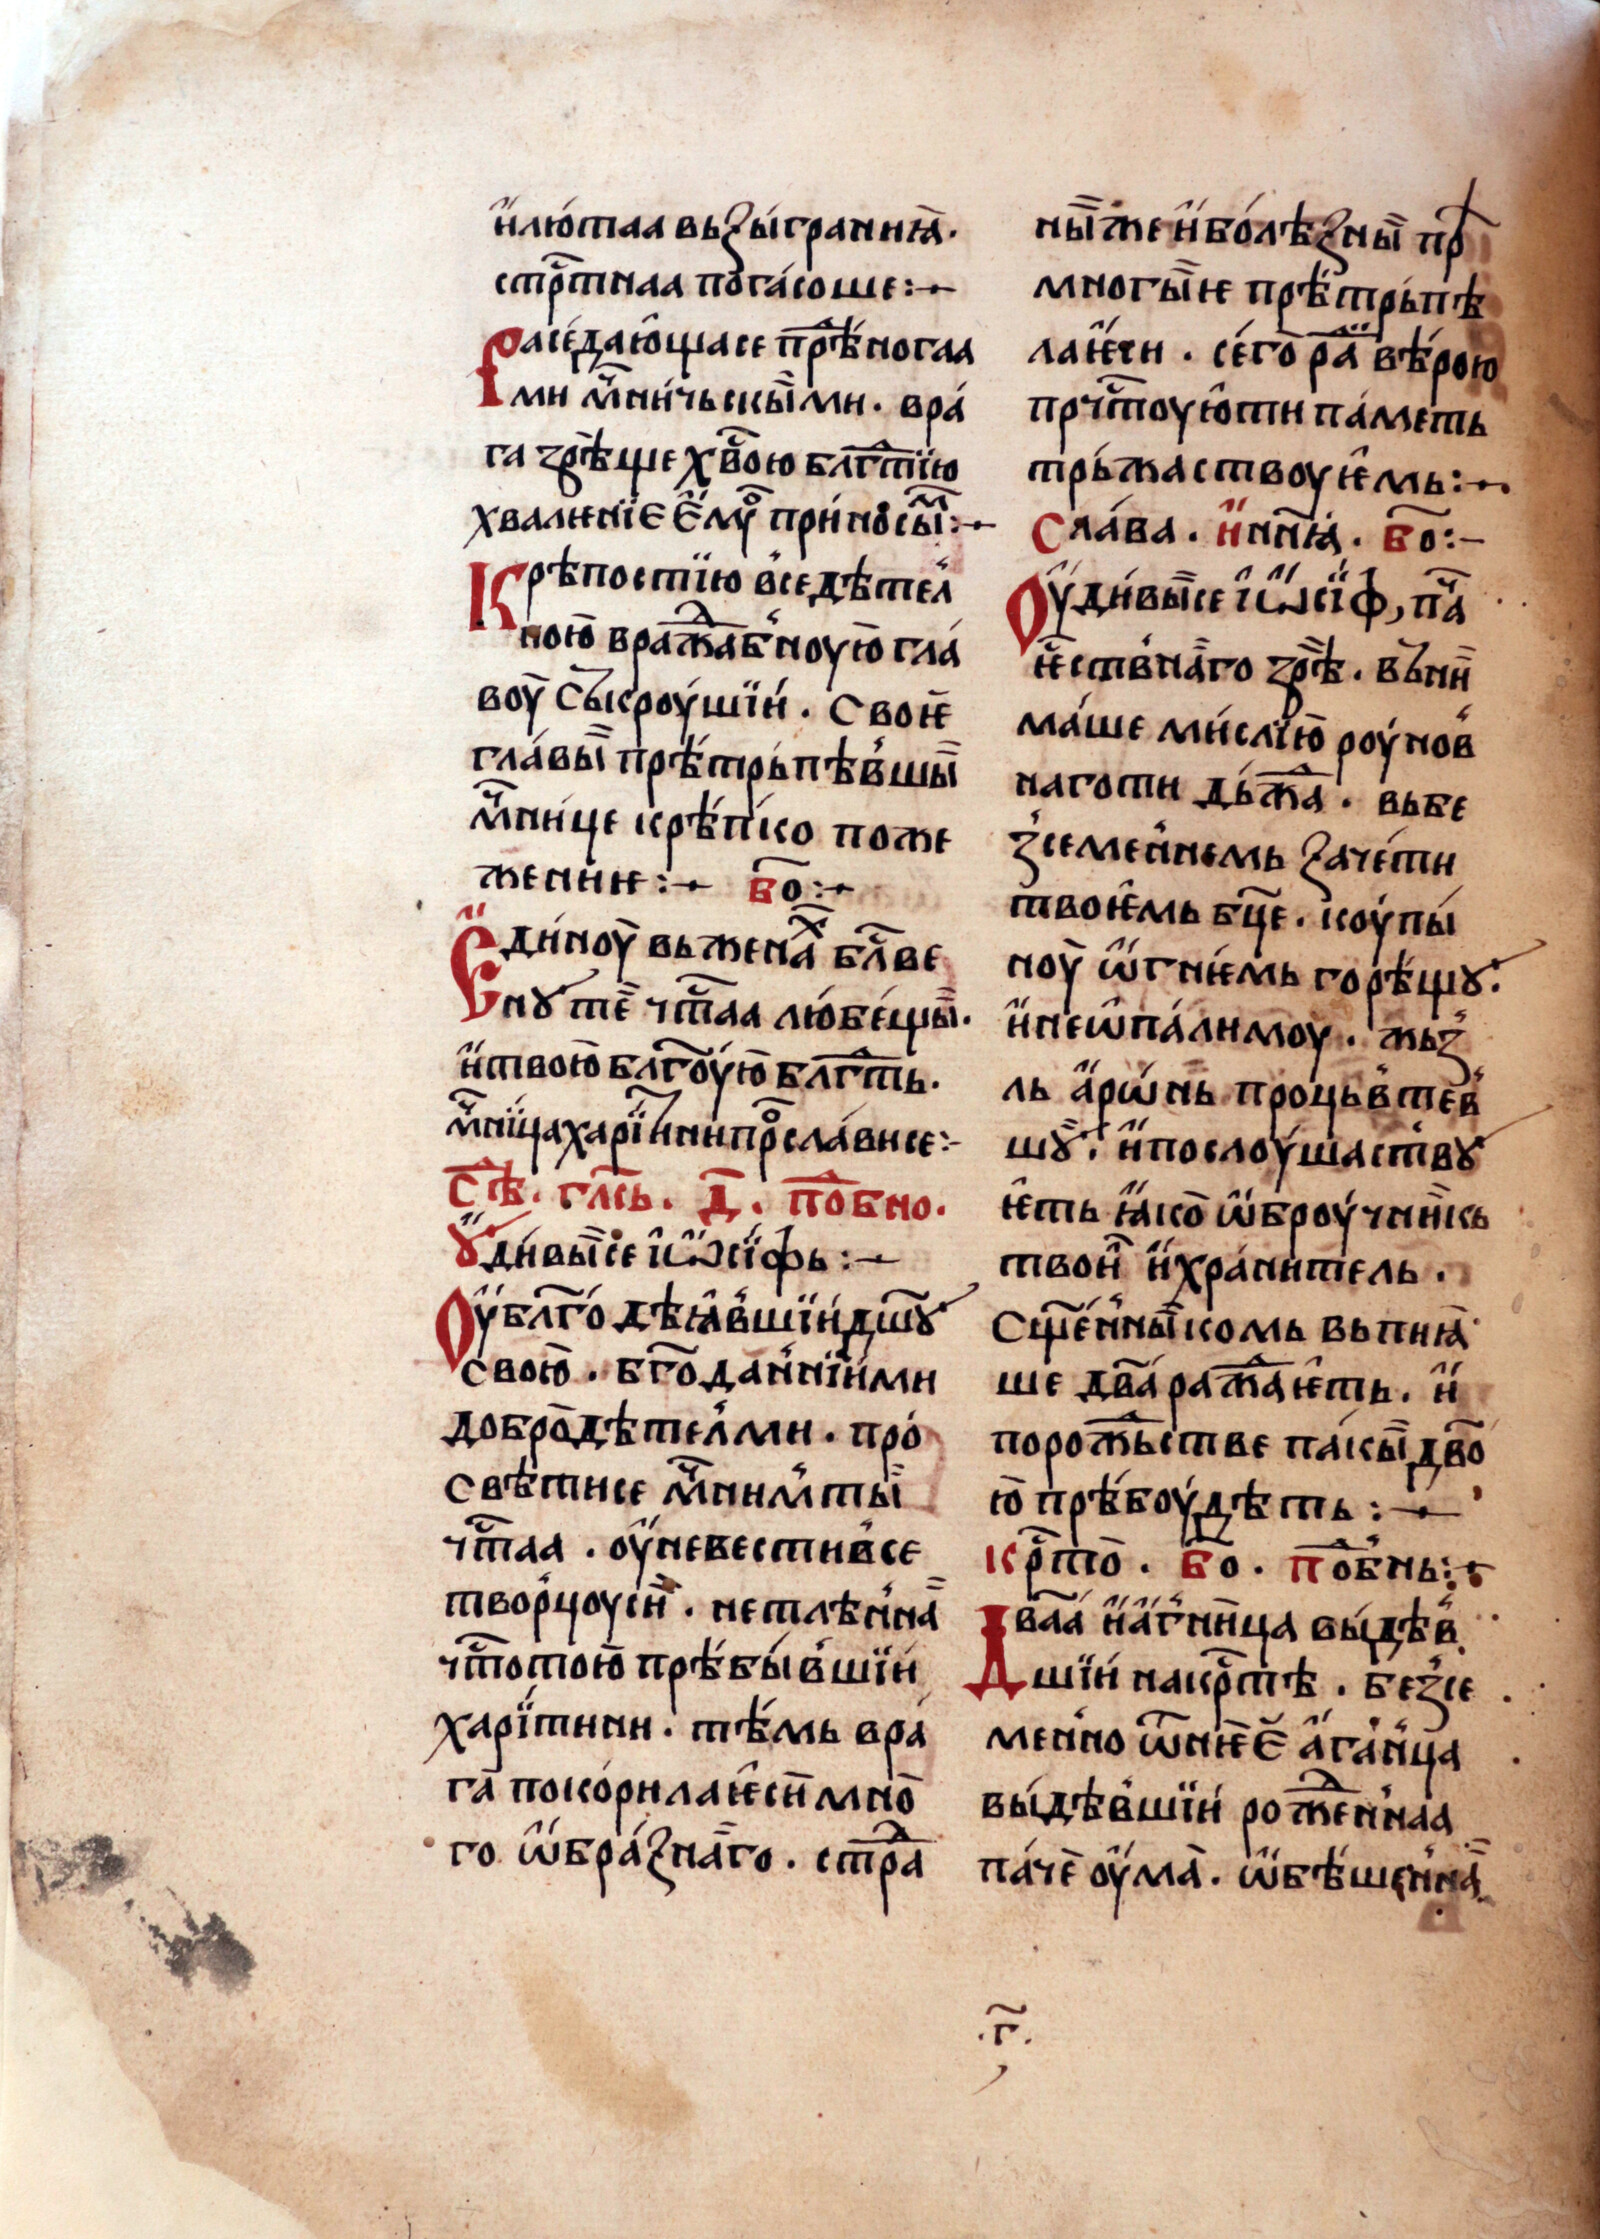 и҆лю́таа вьꙁы́граннꙗ̀.
стрⷭ҇тнаа пога́соше:⁓
Расе́даю҆щасе прⷣѣ́ногаа
ми мч҃ни́чьскы̏ми. вра́
га зрѣ̏ще хв҃ою блгⷣтїю
хваленїе є҆мꙋ̏ прино́сыⷨ:⁓
Крѣпостїю в҆седѣтел҆
ною̀ вражⷣаб҆ноую̀ гла́
воу̀ ськ҆роу́шїи́. свою҆
гла́вы̏ прѣ́трьпѣв҆шы̏
мч҃ни́це крѣ́п҆ко поже
жени́е:⁓ бо҃:⁓
Е҆ди́ноу̀ вьженаⷯ бл҃ве
нꙋ те̏ чⷭ҇таа лю́бе́щы̏.
и҆твою̀ блг҃оу́ю̀ блгⷣть.
мч҃ни́цахарі́тини про̏сла́висе:⁓
Сѣⷣ. гла҃сь. д҃. поⷣбно.
Ꙋ҆ди́вы̏се і҆ѡ҆сі́фь:⁓
Оу҆бл҃го дѣꙗ́в҆шїи́дш҃ꙋ
свою̀. бг҃одан҆нїи́ми
добро̀дѣтел҆ми. про́
свѣтисе мч҃ним҆ты̏
чⷭ҇таа. оу҆невестив҆се
твор҆цоуси̏. нетлѣн҆на̏
чⷭ҇тотою̀ прѣ́бы́в҆шїи́
харі́тини. тѣ́мь вра́
га̀ поко́рилаю҆си̏ мно̀
го ѡ҆бра́ꙁна̏го. стрⷭ҇а
ны̏же и҆бо́лѣꙁны̏ пр
многы̏е прѣ́трьпѣ
лаю҆си. се́го̀ра̏ вѣ́рою
прчⷭ҇тоую҆ти па́меть
трьжаствоуе҆мь:⁓
Сла́ва. и҆нн҃ꙗ. бо҃:⁓
Оу҆ди́вы̏се і҆ѡ҆сі́ф, пч҃а
е҆ств҆на̏го зрѣ̏. вьни̏
ма́ше ми́слїю̀ роу́нов҆
наготи дьжⷣа. вьбе
ꙁ҆семен҆немь ꙁаче́ти
твое҆мь бц҃е. коу́пы́
ноу̀ ѡ҆гнѥ́мь горѣ́щꙋ.
и҆неѡ҆па́лимоу. жьꙁ҆
ль а҆рѡ́нь процьв҆тев҆
шꙋ̏. и҆послоу́шаств҆ꙋ
е҆ть ꙗ҆ко̀ ѡ҆броу́чни̏кь
твои̏ и҆хра́нитель.
Сщ҃е́н҆ны̏комь вьпиꙗ̀
ше дв҃а́ражⷣае҆ть. и҆
порожⷣьстве па́кы̏ дв҃о
ю̀ прѣ́боу́дѣть:⁓
Крⷭ҇то̀. бо҃. поⷣб҆нь:⁓
Два҃а и҆а҆г҆ни̏ца вы́дѣв҆
шїи́ накрⷭ҇тѣ. беꙁ҆се
мен҆но ѿню̏є̆ а҆га́н҆ца
вы́дѣв҆шїи́ рожⷣен҆наа
па́че̏ оу҆ма̀. ѡ҆бѣ́шен҆на̏
.г҃.